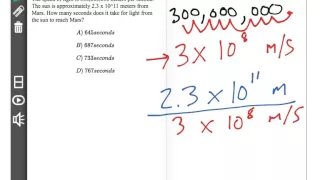 The sun is approximately 2.3 x 10^11 meters from
Mars. How many seconds does it take for light from
the sun to reach Mars?
A) 645seconds
B) 687seconds
C) 733seconds
D) 767seconds
300,000,000
→ 3 x 10⁸ m/s
2.3 x 10¹¹ m
3 x 10⁸ m/s